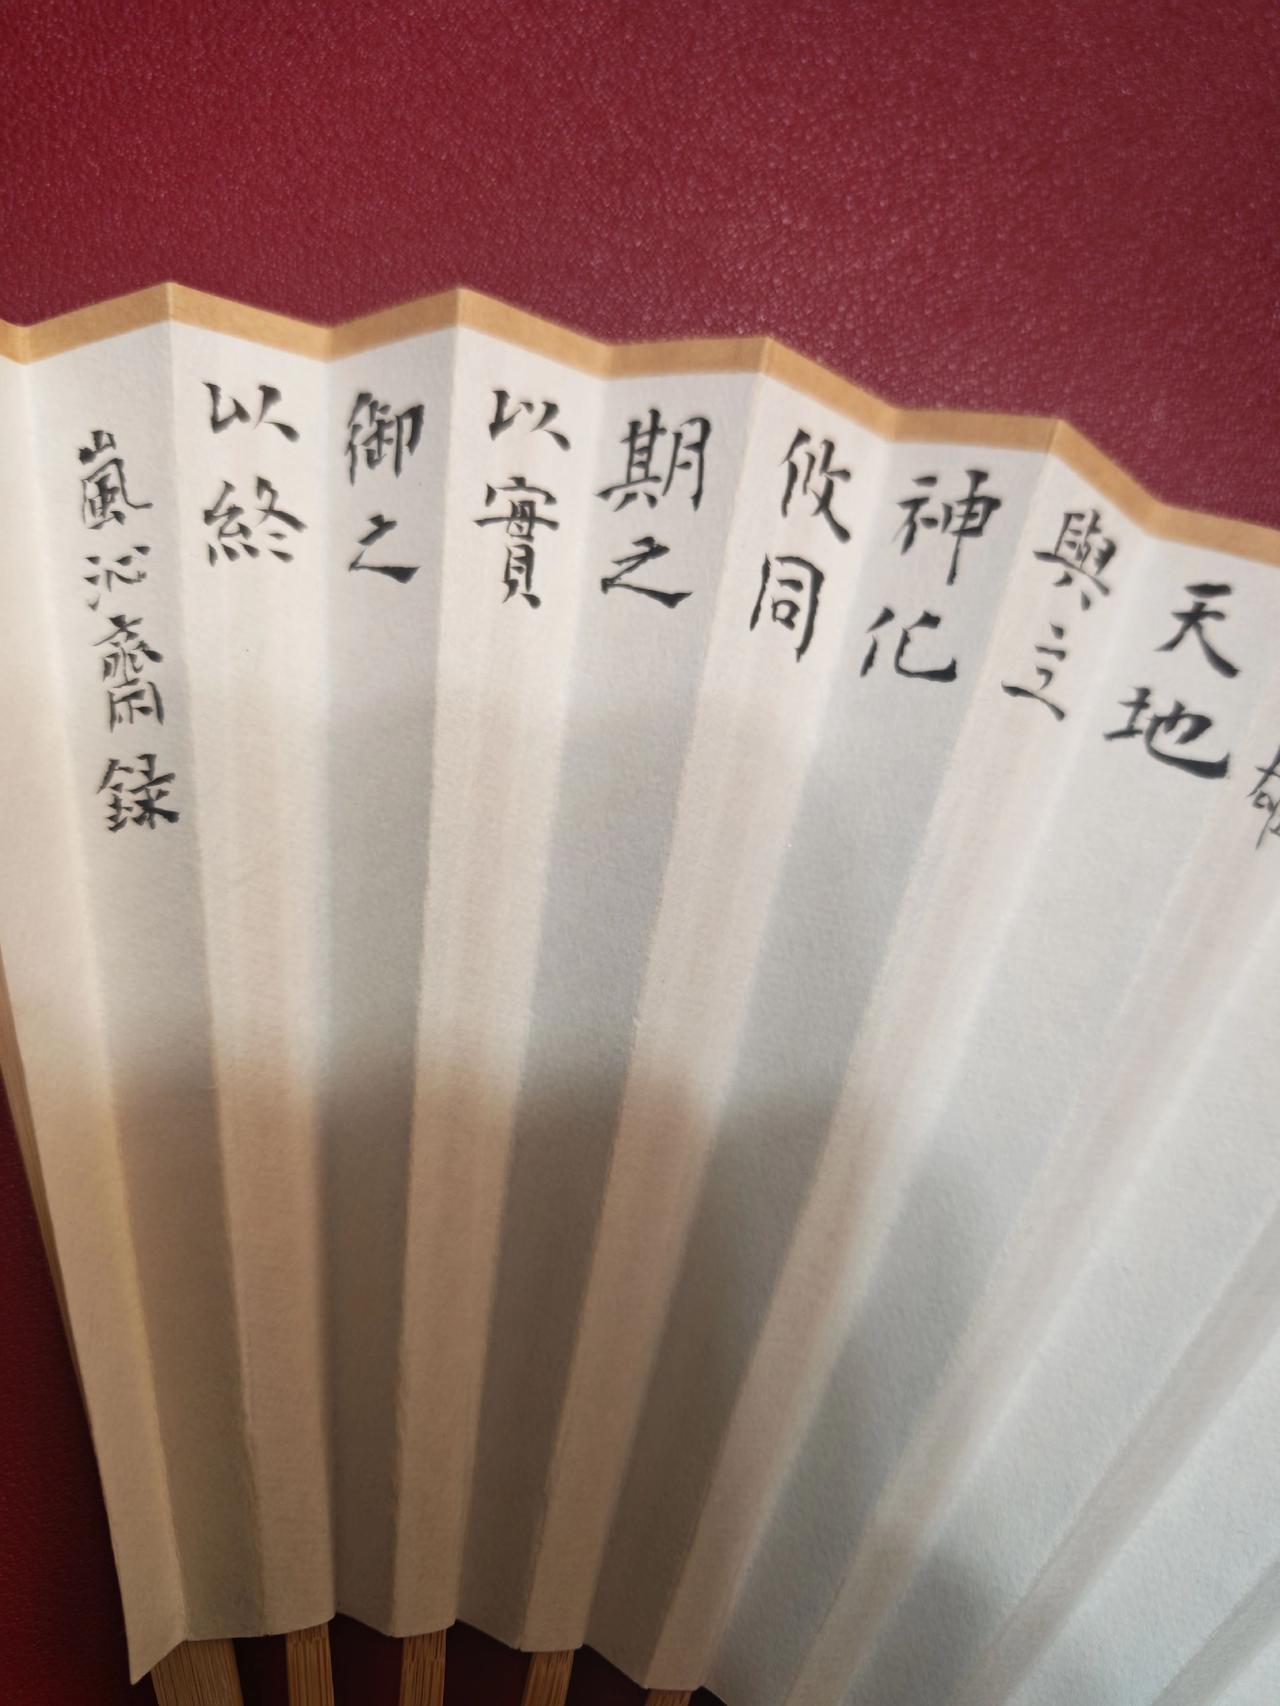 天地
與立
神化
攸同
期之
以實
御之
以終
嵐沁齋録